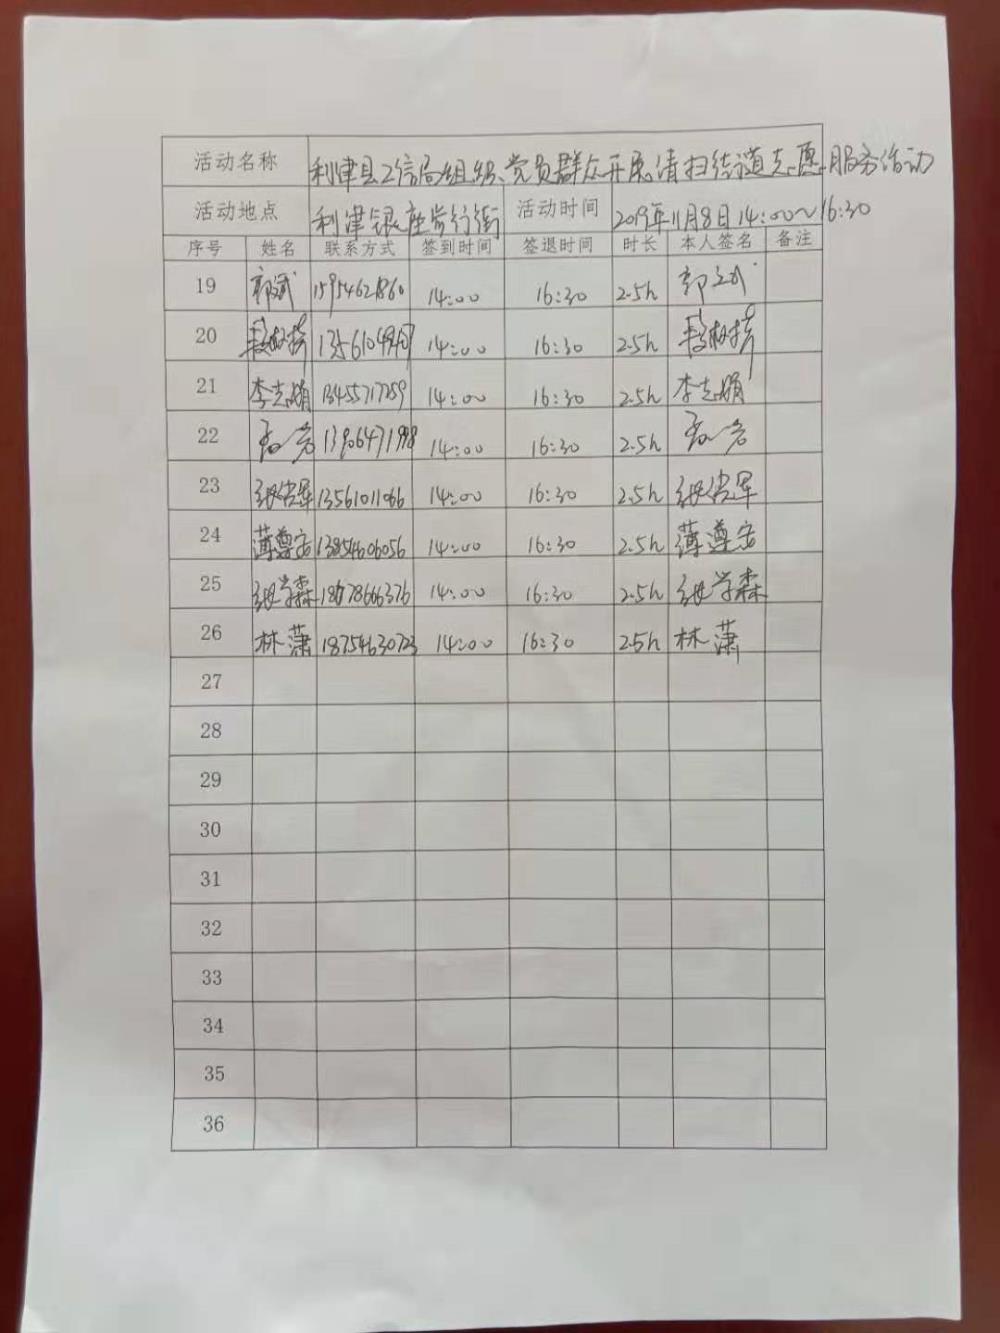 活动名称 利津县工信局组织党员群众开展清扫街道志愿服务活动
活动地点 利津银座步行街 活动时间 2019年11月8日14:00~16:30
序号 姓名 联系方式 签到时间 签退时间 时长 本人签名 备注
19 14:00 16:30 2.5h
20 14:00 16:30 2.5h
21 李志娟 13455717259 14:00 16:30 2.5h 李志娟
22 13906471998 14:00 16:30 2.5h
23 13561011066 14:00 16:30 2.5h
24 薄尊安 13854606056 14:00 16:30 2.5h 薄尊安
25 张学森 14:00 16:30 2.5h 张学森
26 林潇 18754630723 14:00 16:30 2.5h 林潇
27
28
29
30
31
32
33
34
35
36